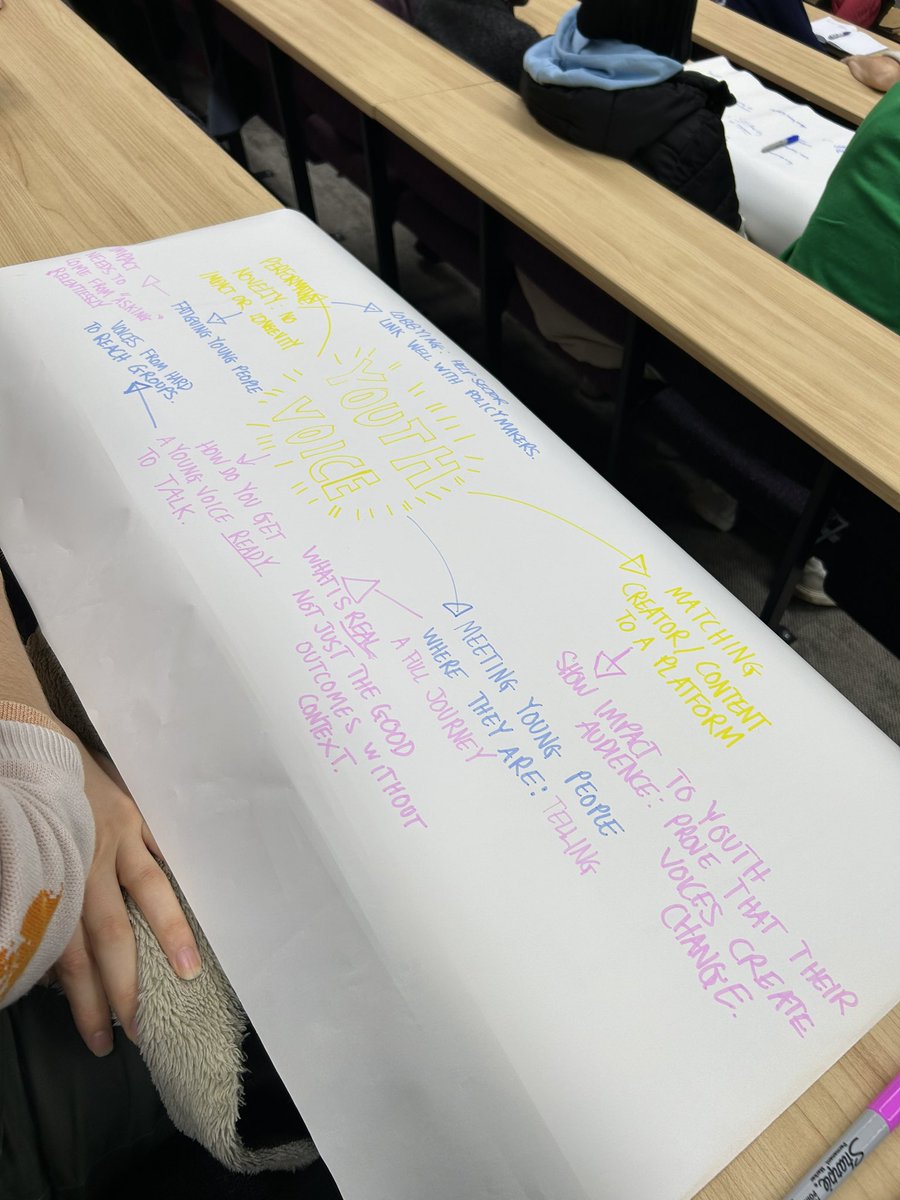 YOUTH
VOICE
PERFORMING
NOVELTY: NO
IMPACT OR LONGEVITY
LOBBYING: HELP SECTOR
LINK WELL WITH POLICYMAKERS.
FATIGUING YOUNG PEOPLE
IMPACT
NEEDS TO
COME FROM "ASKING"
RELENTLESSLY
VOICES FROM HARD
TO REACH GROUPS.
HOW DO YOU GET
A YOUNG VOICE READY
TO TALK.
MATCHING
CREATOR/CONTENT
TO A PLATFORM
SHOW IMPACT TO YOUTH
AUDIENCE: PROVE THAT THEIR
VOICES CREATE
CHANGE.
MEETING YOUNG PEOPLE
WHERE THEY ARE: TELLING
A FULL JOURNEY
WHAT IS REAL
NOT JUST THE GOOD
OUTCOMES WITHOUT
CONTEXT.
Sharpie